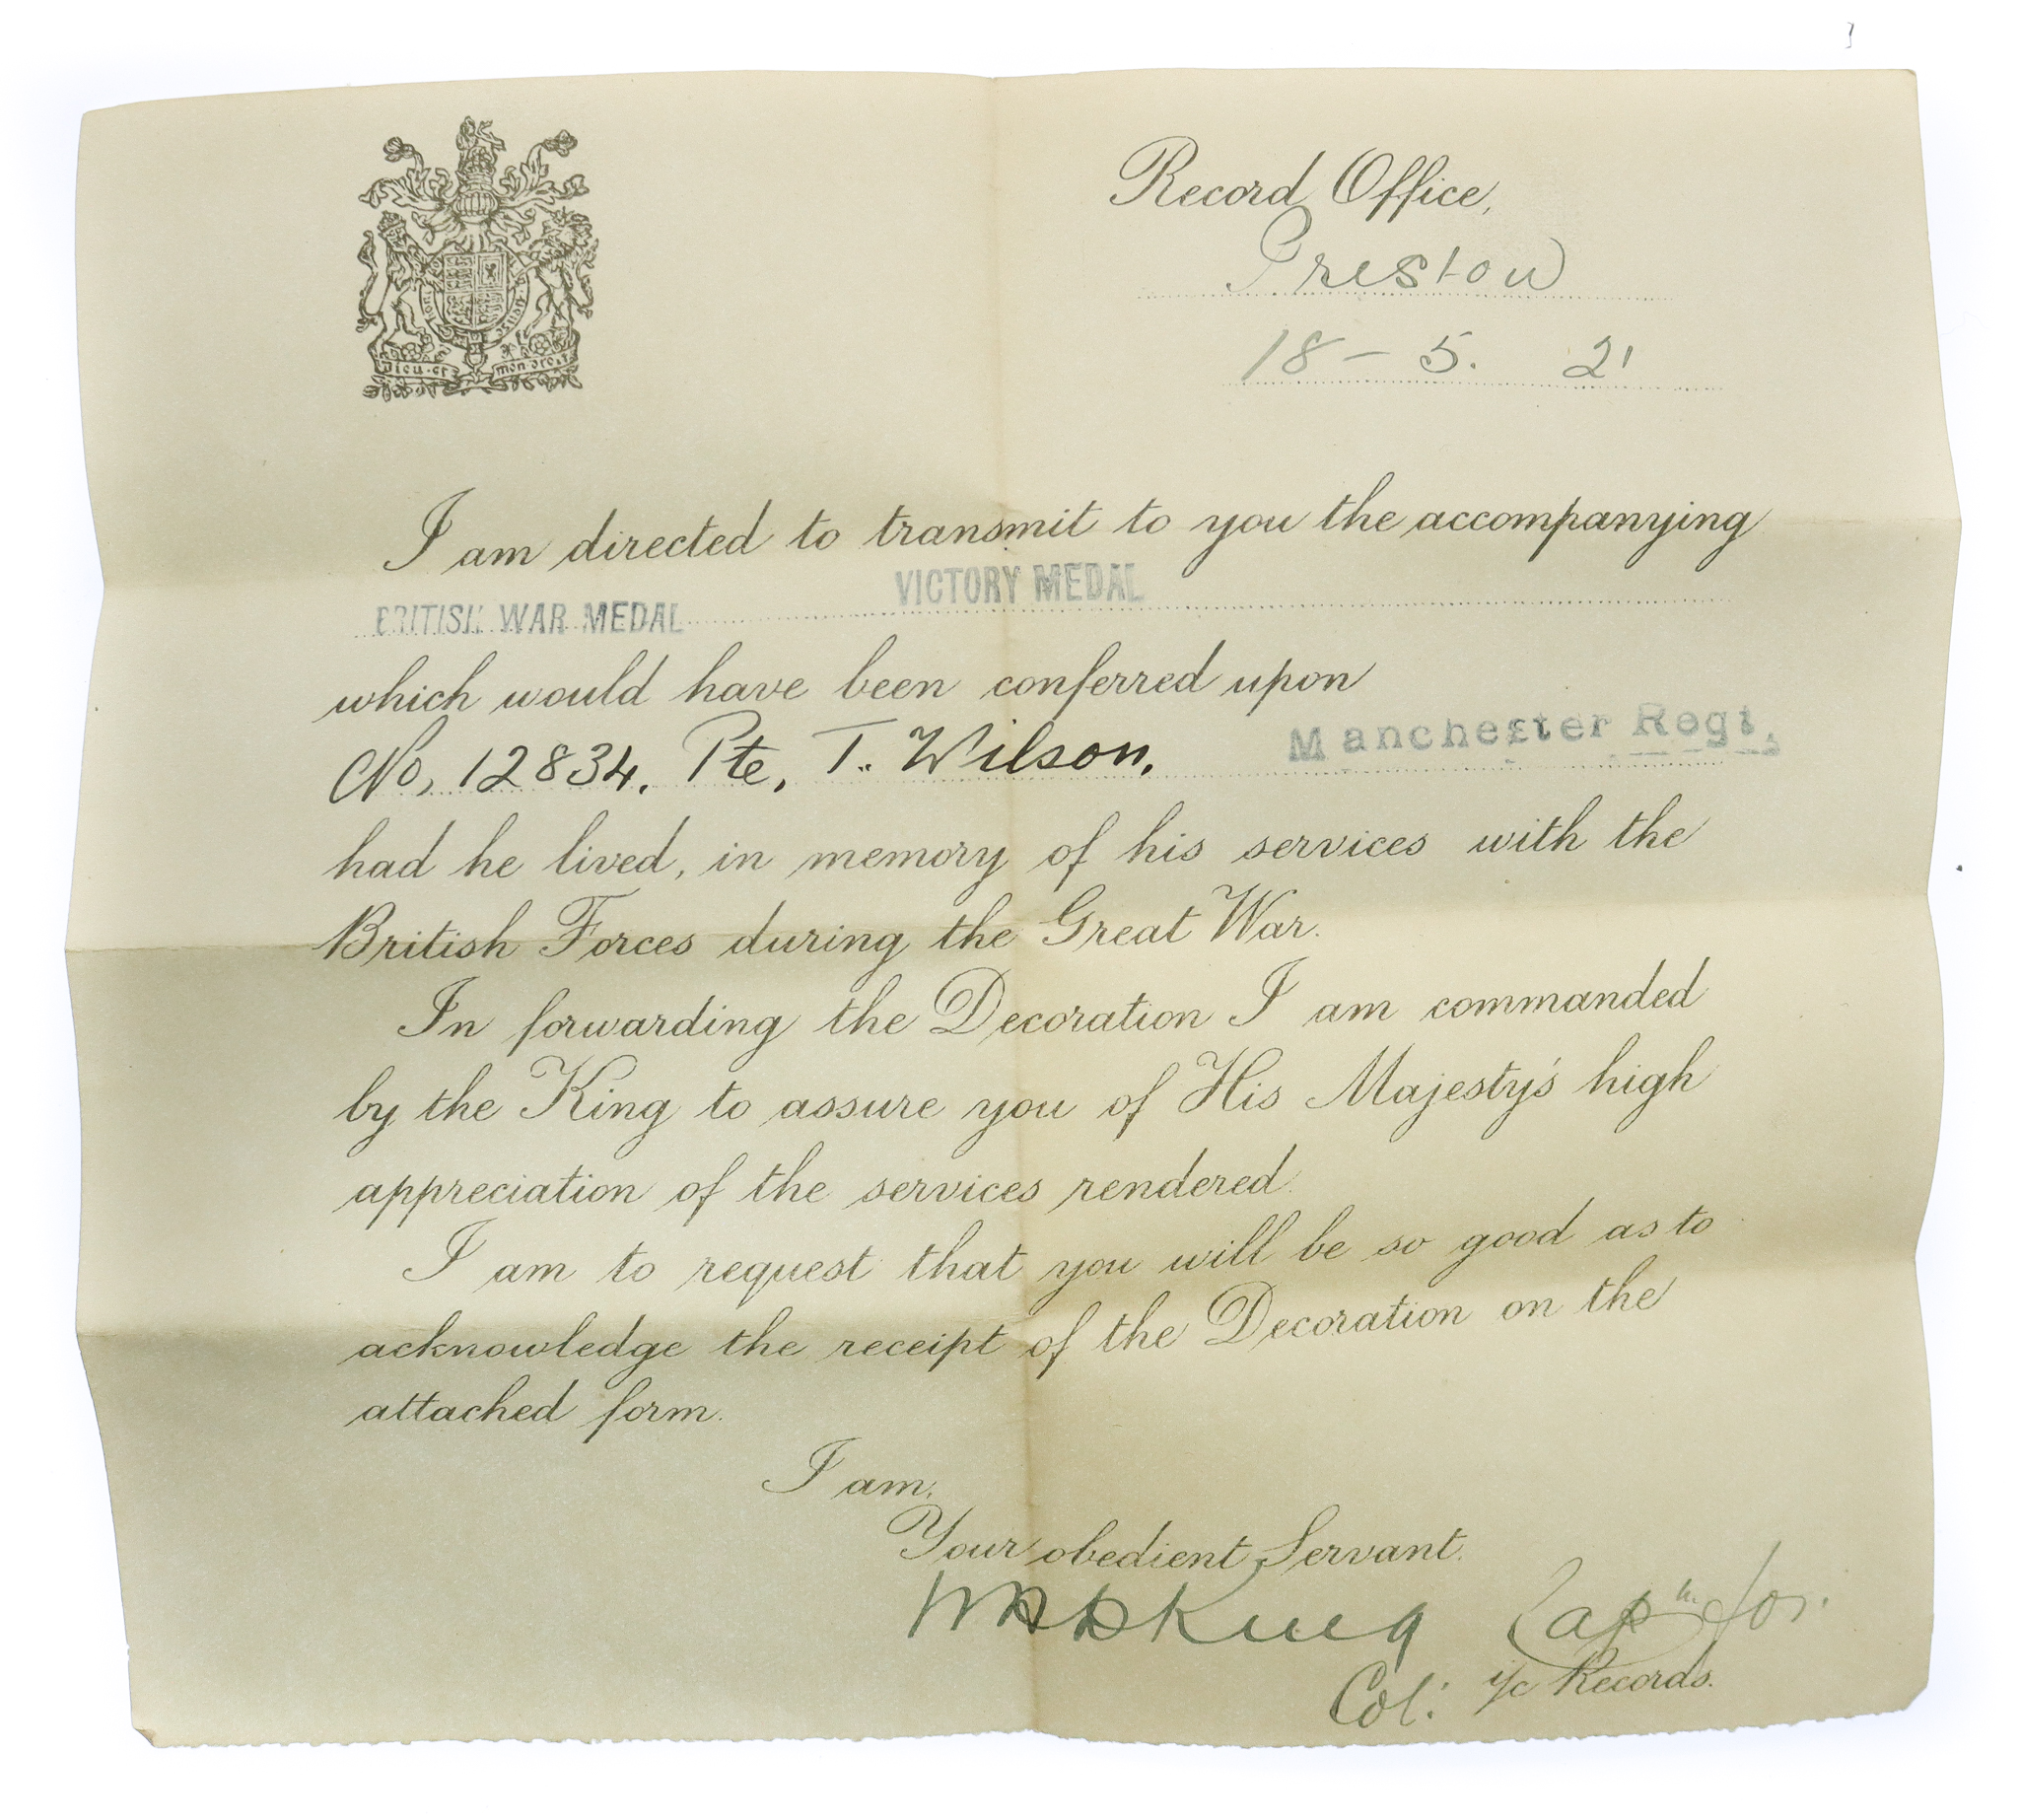 Record Office,
Preston
18 - 5. 21
Dieu et mon droit
I am directed to transmit to you the accompanying
BRITISH WAR MEDAL VICTORY MEDAL
which would have been conferred upon
No, 12834, Pte, T. Wilson, Manchester Regt.
had he lived, in memory of his services with the
British Forces during the Great War.
In forwarding the Decoration I am commanded
by the King to assure you of His Majesty's high
appreciation of the services rendered.
I am to request that you will be so good as to
acknowledge the receipt of the Decoration on the
attached form.
I am,
Your obedient Servant.
King Capn for.
Col: i/c Records.